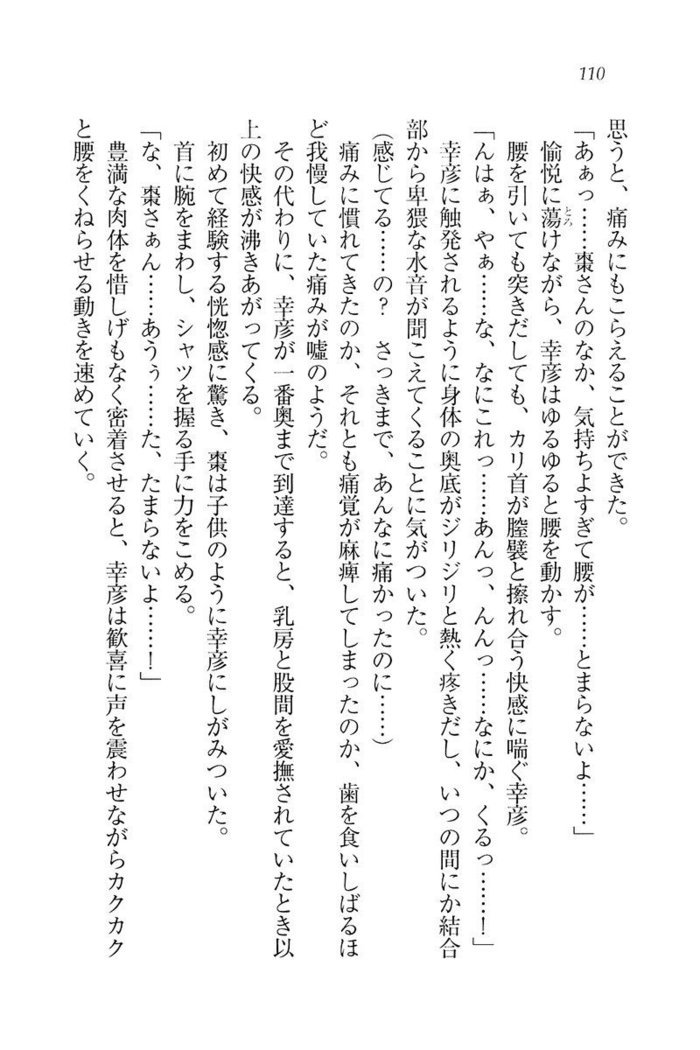 110
思うと、痛みにもこらえることができた。
「あぁっ……棗さんのなか、気持ちよすぎて腰が……とまらないよ……」
愉悦に蕩けながら、幸彦はゆるゆると腰を動かす。
とろ
腰を引いても突きだしても、カリ首が膣襞と擦れ合う快感に喘ぐ幸彦。
「んはぁ、やぁ……な、なにこれっ……あんっ、んんっ……なにか、くるっ……！」
幸彦に触発されるように身体の奥底がジリジリと熱く疼きだし、いつの間にか結合
部から卑猥な水音が聞こえてくることに気がついた。
（感じてる……の？　さっきまで、あんなに痛かったのに……）
痛みに慣れてきたのか、それとも痛覚が麻痺してしまったのか、歯を食いしばるほ
ど我慢していた痛みが嘘のようだ。
その代わりに、幸彦が一番奥まで到達すると、乳房と股間を愛撫されていたとき以
上の快感が沸きあがってくる。
初めて経験する恍惚感に驚き、棗は子供のように幸彦にしがみついた。
首に腕をまわし、シャツを握る手に力をこめる。
「な、棗さぁん……あうぅ……た、たまらないよ……！」
豊満な肉体を惜しげもなく密着させると、幸彦は歓喜に声を震わせながらカクカク
と腰をくねらせる動きを速めていく。